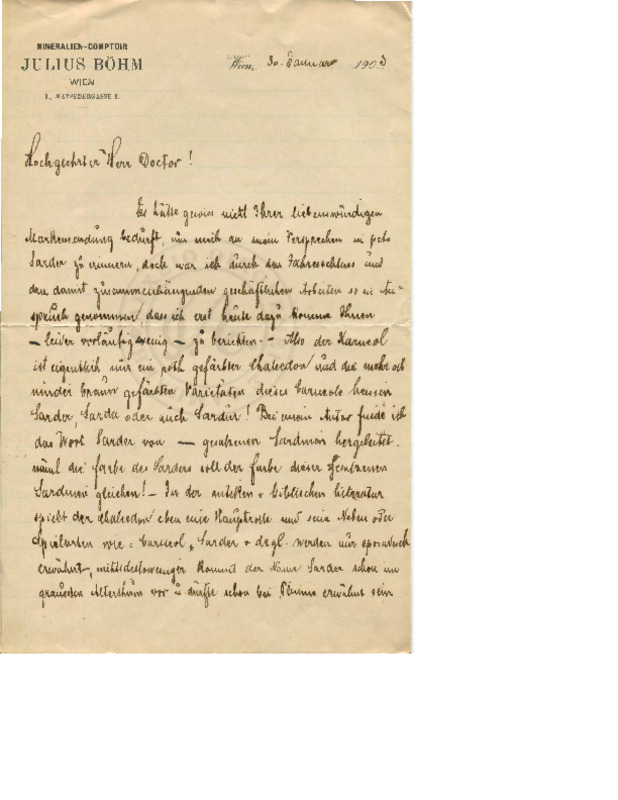 MINERALIEN-COMPTOIR
JULIUS BÖHM
WIEN
Wien, 30. Januar 1903
Hochgeehrter Herr Doctor!
Es hätte gewiss nicht Ihrer liebenswürdigen
Markensendung bedurft, um mich an mein Versprechen in pcto
Sarder zu erinnern, doch war ich durch den Jahresschluss und
den damit zusammenhängenden geschäftlichen Arbeiten so in An-
spruch genommen, dass ich erst heute dazu komme Ihnen
– leider vorläufig wenig – zu berichten. – Also der Karneol
ist eigentlich nur ein roth gefärbter Chalcedon und die mehr od
minder braun gefärbten Varietäten dieses Carneols heissen
Sarder, Sarda oder auch Sardur! Bei einem Autor finde ich
das Wort Sarder von — gesalzenen Sardinen hergeleitet.
näml die Farbe des Sarders soll der Farbe dieser gesalzenen
Sardinen gleichen! – In der antiken + biblischen Literatur
spielt der Chalcedon eben eine Hauptrolle und seine Neben oder
Spielarten wie: Carneol, Sarder + drgl. werden nur sporadisch
erwähnt, nichtsdestoweniger kommt der Name Sarder schon im
grauesten Alterthum vor u. dürfte schon bei Plinius erwähnt sein